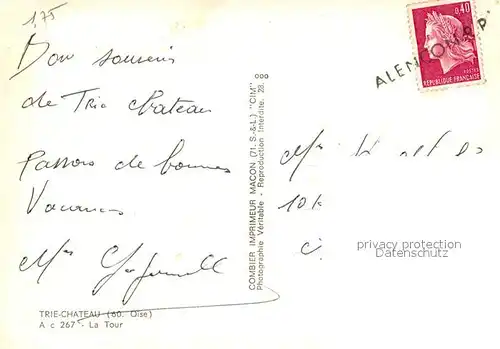 175
Bon souvenir
de Trie chateau
Passons de bonnes
Vacances
TRIE-CHATEAU (60. Oise)
A c 267 - La Tour
COMBIER IMPRIMEUR MACON (71. S.-&-L.) "CIM"
Photographie Véritable - Reproduction Interdite. 28.
0,40
POSTES
REPUBLIQUE FRANÇAISE
privacy protection
Datenschutz